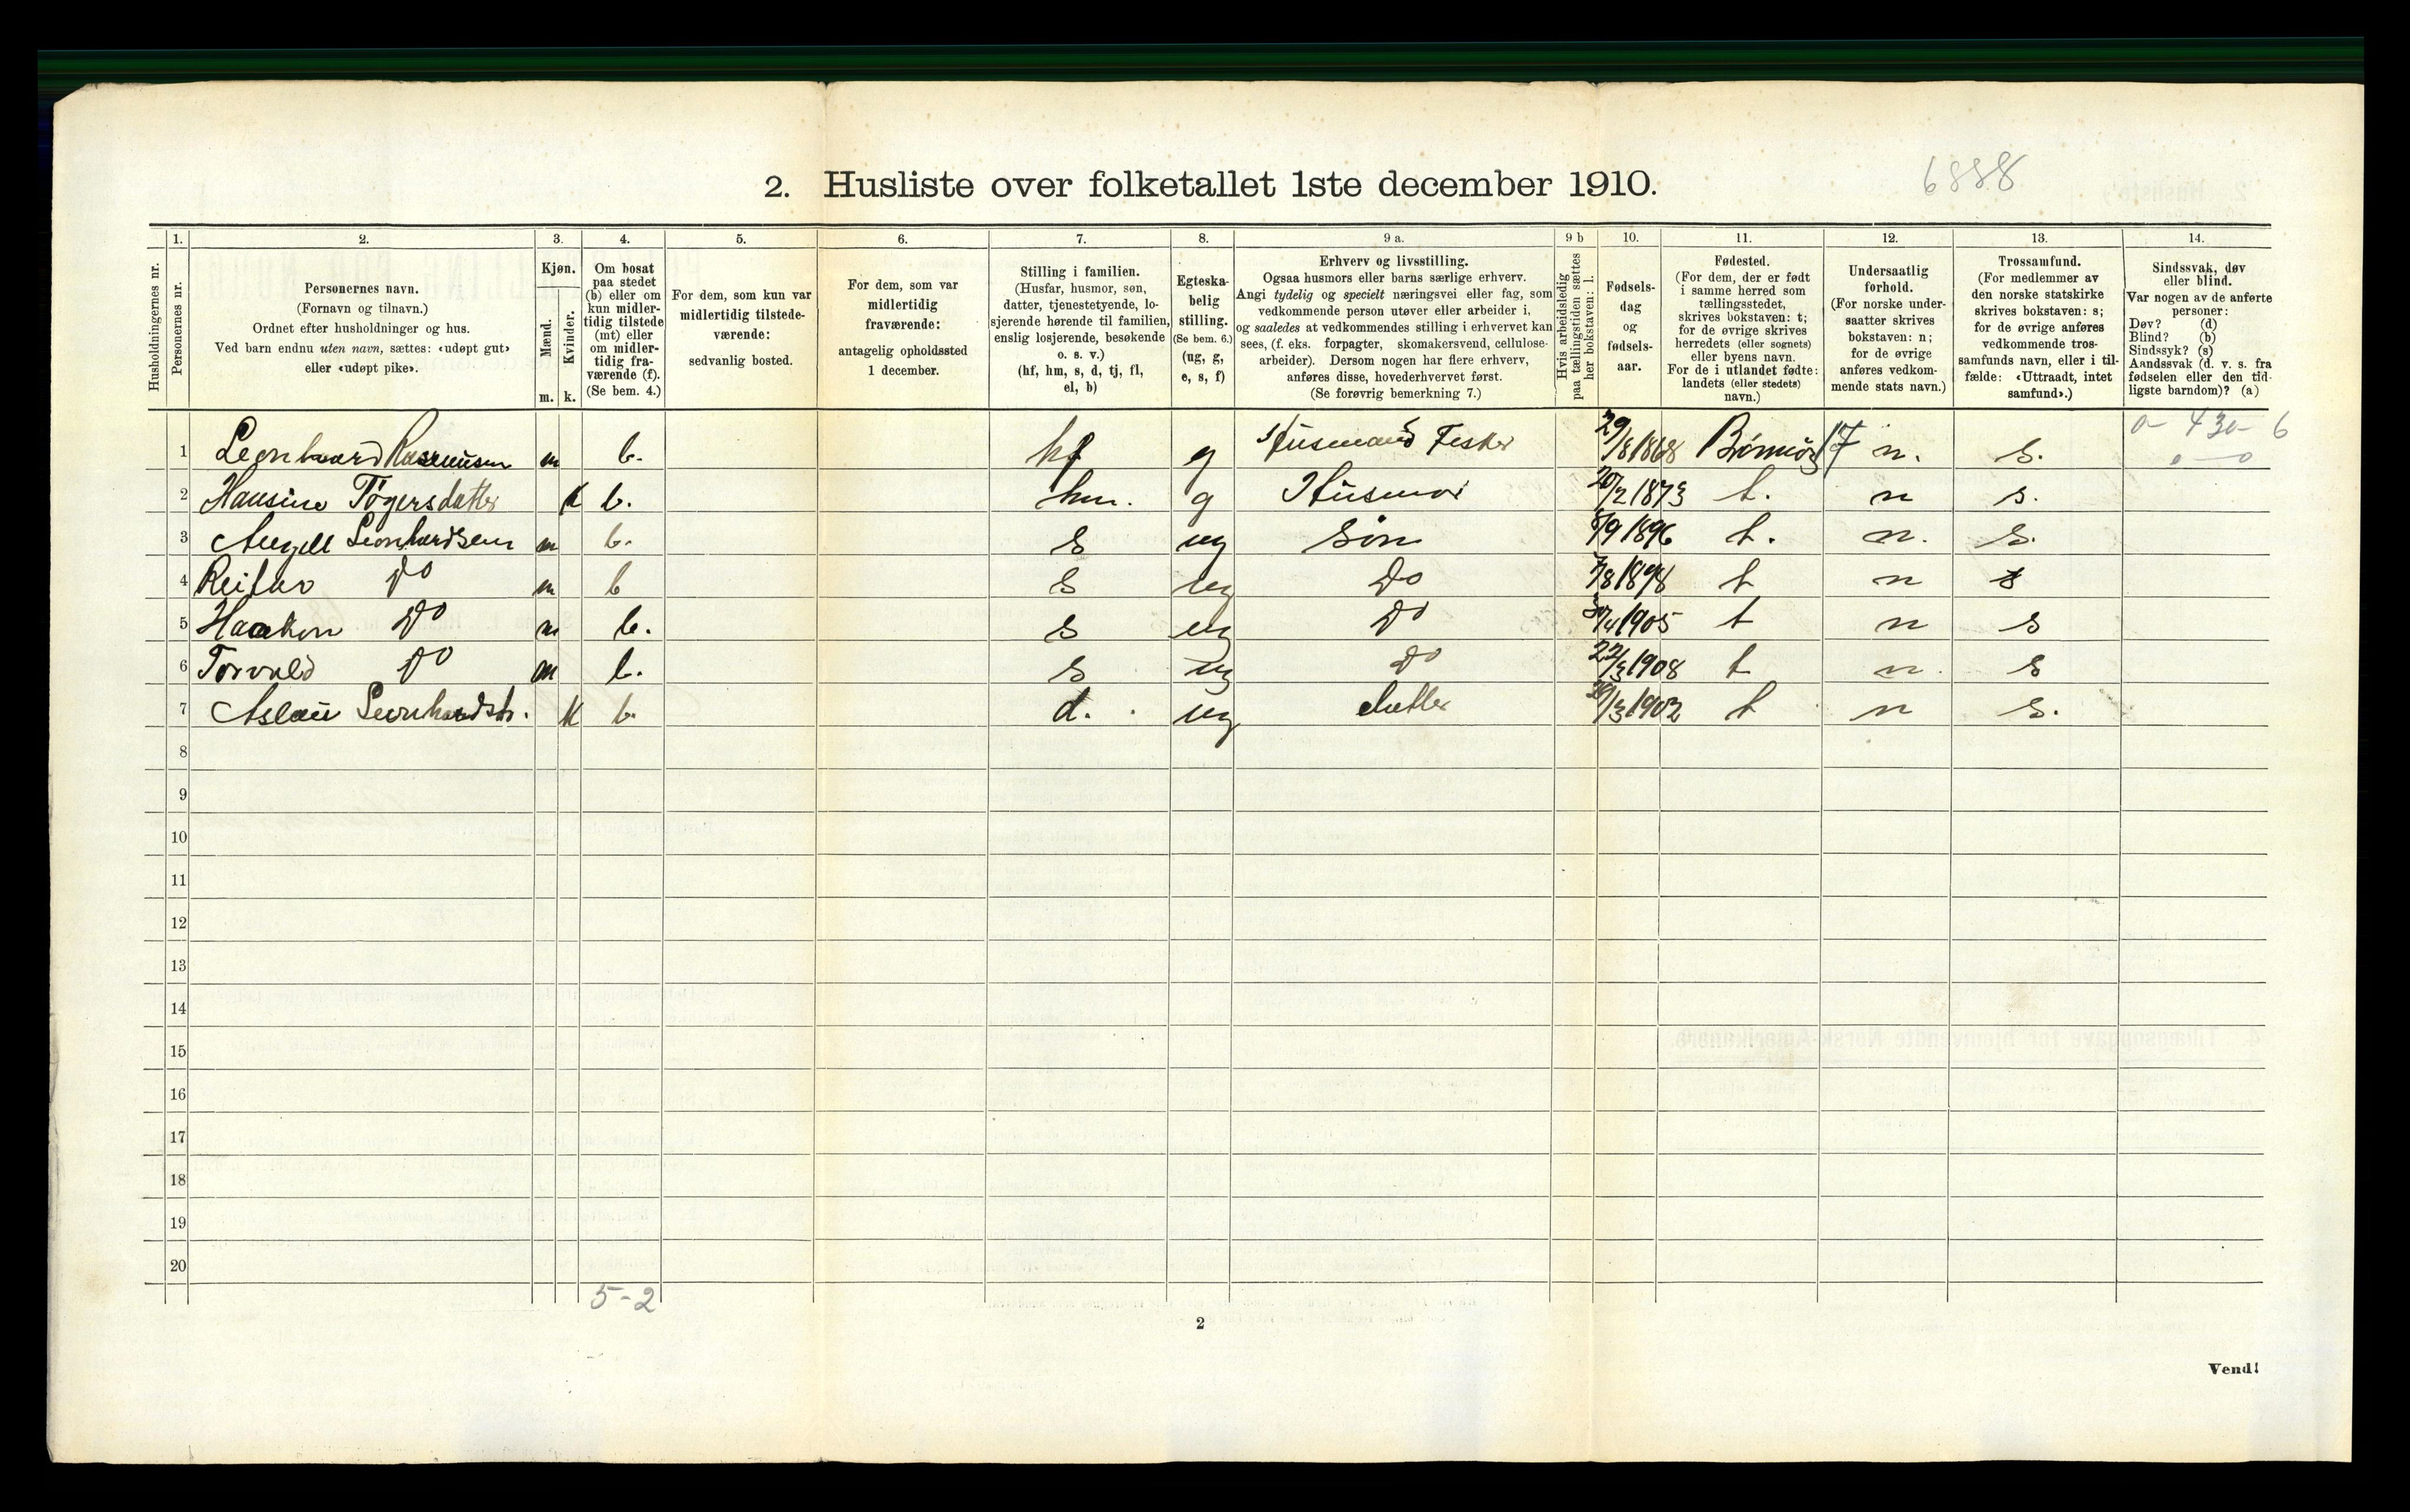 6888
2. Husliste over folketallet 1ste december 1910.
Husholdningernes nr.
1. Personernes nr.
2. Personernes navn.
(Fornavn og tilnavn.)
Ordnet efter husholdninger og hus.
Ved barn endnu uten navn, sættes: «udøpt gut»
eller «udøpt pike».
3. Kjøn.
Mænd. m.
Kvinder. k.
4. Om bosat
paa stedet
(b) eller om
kun midler-
tidig tilstede
(mt) eller
om midler-
tidig fra-
værende (f).
(Se bem. 4.)
5. For dem, som kun var
midlertidig tilstede-
værende:
sedvanlig bosted.
6. For dem, som var
midlertidig
fraværende:
antagelig opholdssted
1 december.
7. Stilling i familien.
(Husfar, husmor, søn,
datter, tjenestetyende, lo-
sjerende hørende til familien,
enslig losjerende, besøkende
o. s. v.)
(hf, hm, s, d, tj, fl,
el, b)
8. Egteska-
belig
stilling.
(Se bem. 6.)
(ug, g,
e, s, f)
9 a. Erhverv og livsstilling.
Ogsaa husmors eller barns særlige erhverv.
Angi tydelig og specielt næringsvei eller fag, som
vedkommende person utøver eller arbeider i,
og saaledes at vedkommendes stilling i erhvervet kan
sees, (f. eks. forpagter, skomakersvend, cellulose-
arbeider). Dersom nogen har flere erhverv,
anføres disse, hovederhvervet først.
(Se forøvrig bemerkning 7.)
9 b Hvis arbeidsledig
paa tællingstiden sættes
her bokstaven: l.
10. Fødsels-
dag
og
fødsels-
aar.
11. Fødested.
(For dem, der er født
i samme herred som
tællingsstedet,
skrives bokstaven: t;
for de øvrige skrives
herredets (eller sognets)
eller byens navn.
For de i utlandet fødte:
landets (eller stedets)
navn.)
12. Undersaatlig
forhold.
(For norske under-
saatter skrives
bokstaven: n;
for de øvrige
anføres vedkom-
mende stats navn.)
13. Trossamfund.
(For medlemmer av
den norske statskirke
skrives bokstaven: s;
for de øvrige anføres
vedkommende tros-
samfunds navn, eller i til-
fælde: «Uttraadt, intet
samfund».)
14. Sindssvak, døv
eller blind.
Var nogen av de anførte
personer:
Døv? (d)
Blind? (b)
Sindssyk? (s)
Aandssvak (d. v. s. fra
fødselen eller den tid-
ligste barndom)? (a)
1 Leonhard Rasmusen m b. hf g Husmand Fisker 29/8 1868 17 n. s.
2 Hansine Tøgersdatter k b. hm. g Husmor 20/2 1873 t. n s.
3 Leonhardsen m b. s ug Søn 8/9 1896 t. n. s.
4 Do m b s ug Do 7/8 1898 t n s
5 Haakon Do m b. s ug Do /4 1905 t n s
6 Torvald Do m b. s ug Do 22/3 1908 t n. s
7 Aslau Leonhardsdtr. k b. d. ug datter /3 1902 t n s.
8
9
10
11
12
13
14
15
16
17
18
19
20
5-2
2
Vend!